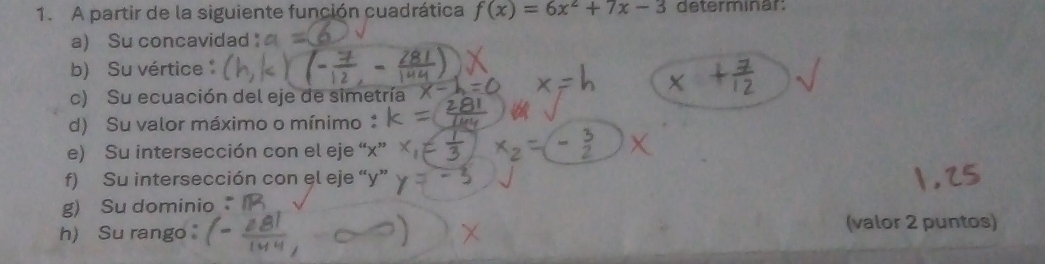 1. A partir de la siguiente función cuadrática f(x) = 6x² + 7x − 3 determinar:
a) Su concavidad : a = 6 ✓
b) Su vértice : (h, k) (-7/12, -281/144) X
c) Su ecuación del eje de simetría x-h=0 x=h x + 7/12 ✓
d) Su valor máximo o mínimo : k = 281/144 ✓
e) Su intersección con el eje “x” x₁ = 1/3 x₂ = -3/2 X
f) Su intersección con el eje “y” y = -3 ✓
1.25
g) Su dominio : IR ✓
h) Su rango : (-281/144, -∞) X (valor 2 puntos)